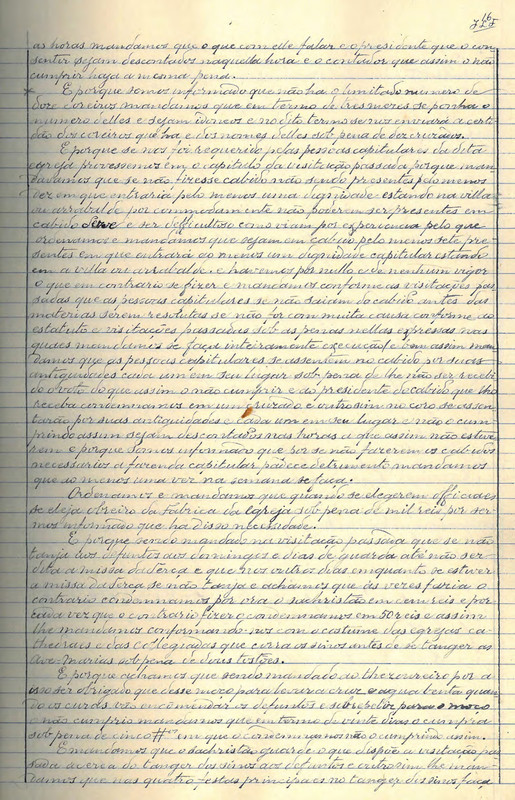 as horas mandamos que o que com elle falar e o presidente que o con-
sentir sejam descontados naquella hora e o contador que assim o não
cumprir haja a mesma pena.
E porque somos informado que não ha o limitado numero de
doze coreiros mandamos que em termo de tres meres se ponha o
numero delles e sejam idoneos e no dito termo se nos enviará a certi-
dão dos coreiros que ha e dos nomes delles sob pena de dez cruzados.
E porque se nos foi requerido pelas pessoas capitulares da dita
egreja provessemos em o capitulo da visitação passada porque man-
davamos que se não fizesse cabido não sendo presentes pelo menos
vez em que entraria pelo menos uma dignidade estando na villa
ou arrabalde por commodamente não poderem ser presentes em
cabido e ser difficultoso como viam por experiencia pelo que
ordenamos e mandamos que sejam em cabido pelo menos sete pre-
sentes em que entrará ao menos um dignidade capitular estando
em a villa ou arrabalde e havemos por nullo e de nenhum vigor
o que em contrario se fizer e mandamos conforme as visitações pas-
sadas que as pessoas capitulares se não saiam do cabido antes das
materias serem resolutas se não for com muita causa conforme ao
estatuto e visitações passadas sob as penas nellas expressas nas
quaes mandamos se faça inteiramente execução e bem assim man-
damos que as pessoas capitulares se assentem no cabido por suas
antiguidades cada um em seu lugar sob pena de lhe não ser recebi-
do o voto do que assim o não cumprir e ao presidente do cabido que lho
receba condemnamos em um cruzado e outrosim no coro se assen-
tarão por suas antiguidades e cada um em seu lugar e não o cum-
prindo assim sejam descontados nas horas q assim não estive-
rem e porque somos informado que por se não fazerem os cabidos
necessarios a fazenda capitular padece detrimento mandamos
que ao menos uma vez na semana se faça.
Ordenamos e mandamos que quando se elegerem officiaes
se eleja obreiro da fabrica da Igreja sob pena de mil reis por ser-
mos informado que ha disso necessidade.
E porque sendo mandado na visitação passada que se não
tanja aos defuntos aos domingos e dias de guarda até não ser
dita a missa da Terça e que nos outros dias emquanto se estiver
a missa da Terça se não tanja e achamos que ás vezes faria o
contrario condemnamos por ora o sachristão em cem reis e por
cada vez que o contrario fizer o condemnamos em 50 reis e assim
lhe mandamos conformando-nos com o costume das egrejas ca-
thedraes e das collegiadas que corra os sinos antes de se tanger as
Ave-Marias sob pena de dous tostões.
E porque achamos que sendo mandado ao thezoureiro por a
isso ser obrigado que desse moço para levar a cruz e agua benta quan-
do os curas vão encomendar os defuntos e para o moço
o não cumprio mandamos que em termo de vinte dias o cumpra
sob pena de cinco em que o condemnamos não o cumprindo assim.
E mandamos que o sachristão guarde o que dispõe a visitação pas-
sada acerca do tanger dos sinos aos defuntos e outrosim lhe man-
damos que nas quatro festas principaes no tanger dos sinos faça